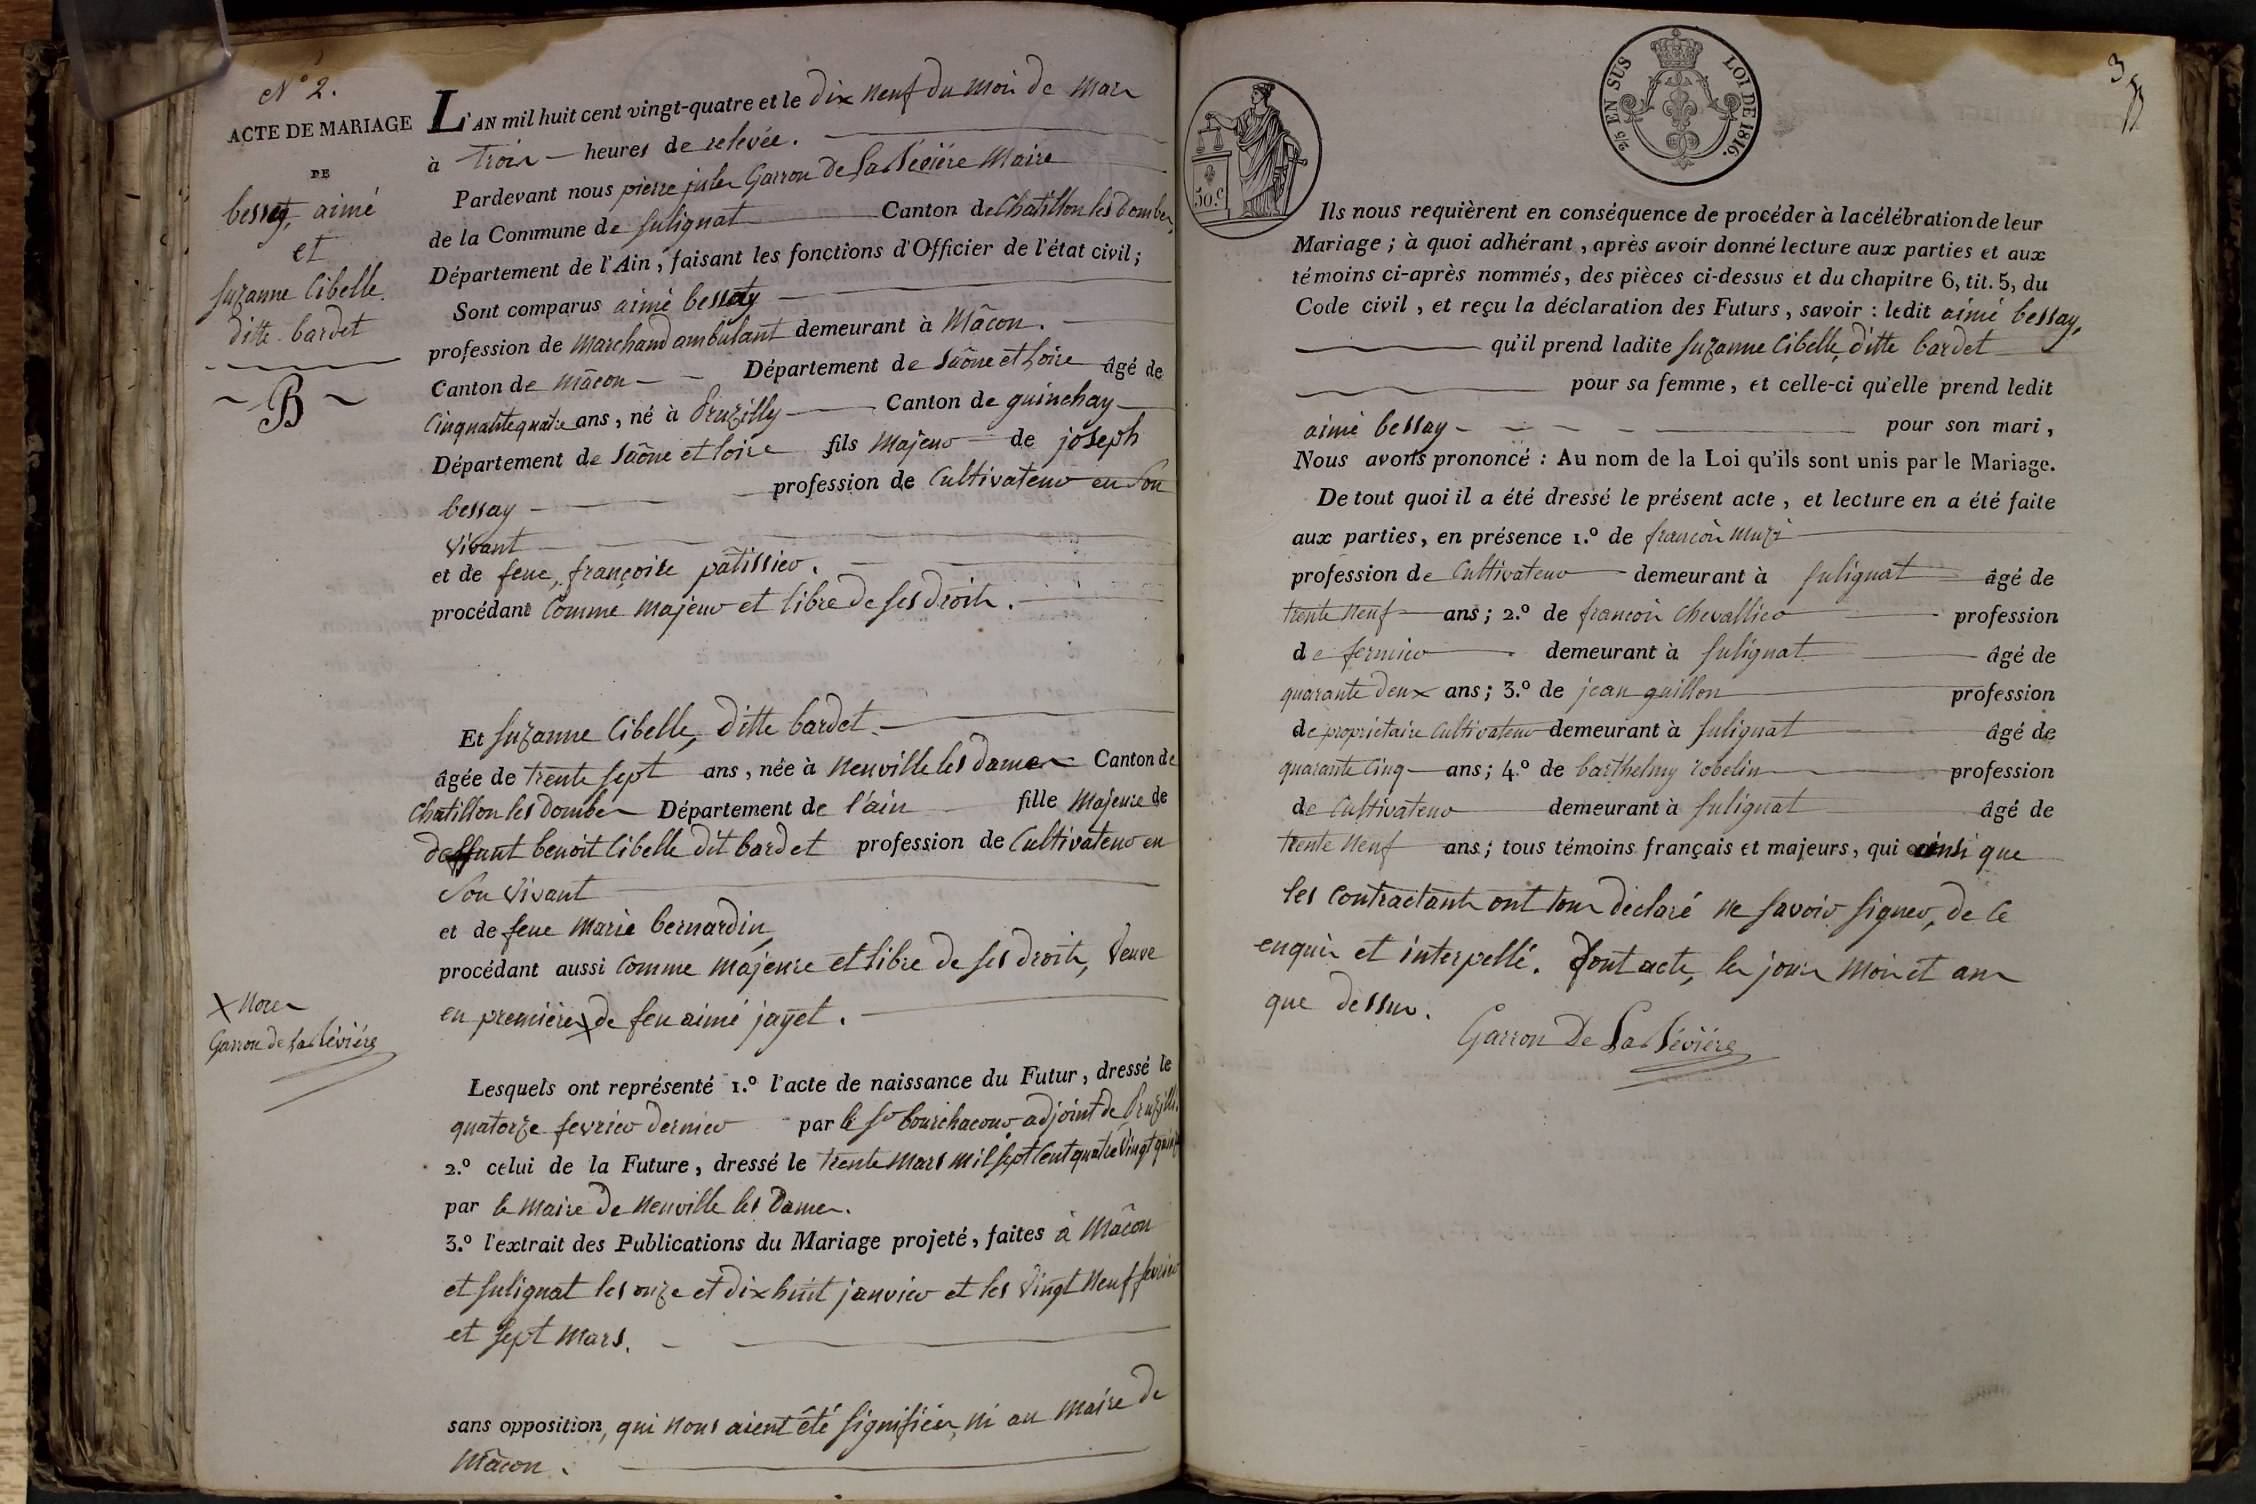 N° 2.
ACTE DE MARIAGE
DE
bessay, aimé
et
suzanne Cibelle
ditte bardet
B
X Noces
Garron de la Bévière
L'AN mil huit cent vingt-quatre et le dix neuf du mois de mars
à trois heures de relevée.
Pardevant nous pierre jules Garron de la Bévière Maire
de la Commune de sulignat Canton de Chatillon les Dombes,
Département de l'Ain, faisant les fonctions d'Officier de l'état civil;
Sont comparus aimé bessay
profession de marchand ambulant demeurant à Mâcon.
Canton de mâcon Département de Saône et Loire âgé de
Cinquante quatre ans, né à Pruzilly Canton de guinchay
Département de Saône et Loire fils majeur de joseph
bessay profession de Cultivateur en Son
vivant
et de feue, françoise pâtissier.
procédant Comme majeur et libre de ses droits.
Et suzanne Cibelle, ditte bardet.
âgée de trente sept ans, née à Neuville les dames Canton de
Chatillon les Dombes Département de l'ain fille majeure de
deffunt benoit Cibelle dit bardet profession de Cultivateur en
Son Vivant
et de feue Marie bernardin,
procédant aussi Comme majeure et libre de ses droits, Veuve
en premières X de feu aimé jayet.
Lesquels ont représenté 1.° l'acte de naissance du Futur, dressé le
quatorze fevrier dernier par le Sr bourchacour adjoint de Pruzilly
2.° celui de la Future, dressé le trente Mars mil sept Cent quatre Vingt
par le Maire de Neuville les Dames.
3.° l'extrait des Publications du Mariage projeté, faites à Mâcon
et sulignat les onze et dix huit janvier et les Vingt Neuf fevrier
et sept Mars.
sans opposition, qui nous aient été signifiées, ni au Maire de
Mâcon.
3
50 C.
2/5 EN SUS LOI DE 1816.
Ils nous requièrent en conséquence de procéder à la célébration de leur
Mariage; à quoi adhérant, après avoir donné lecture aux parties et aux
témoins ci-après nommés, des pièces ci-dessus et du chapitre 6, tit. 5, du
Code civil, et reçu la déclaration des Futurs, savoir: ledit aimé bessay,
qu'il prend ladite suzanne Cibelle, ditte bardet
pour sa femme, et celle-ci qu'elle prend ledit
aimé bessay pour son mari,
Nous avons prononcé: Au nom de la Loi qu'ils sont unis par le Mariage.
De tout quoi il a été dressé le présent acte, et lecture en a été faite
aux parties, en présence 1.° de françois muzi
profession de Cultivateur demeurant à sulignat âgé de
trente neuf ans; 2.° de françois Chevallier profession
de fermier demeurant à sulignat âgé de
quarante deux ans; 3.° de jean guillon profession
de propriétaire Cultivateur demeurant à sulignat âgé de
quarante Cinq ans; 4.° de barthelmy robelin profession
de Cultivateur demeurant à sulignat âgé de
trente neuf ans; tous témoins français et majeurs, qui ainsi que
les Contractants ont tous déclaré ne savoir signer, de Ce
enquis et interpellé. dont acte, les jour, mois et ans
que dessus.
Garron De La Bévière